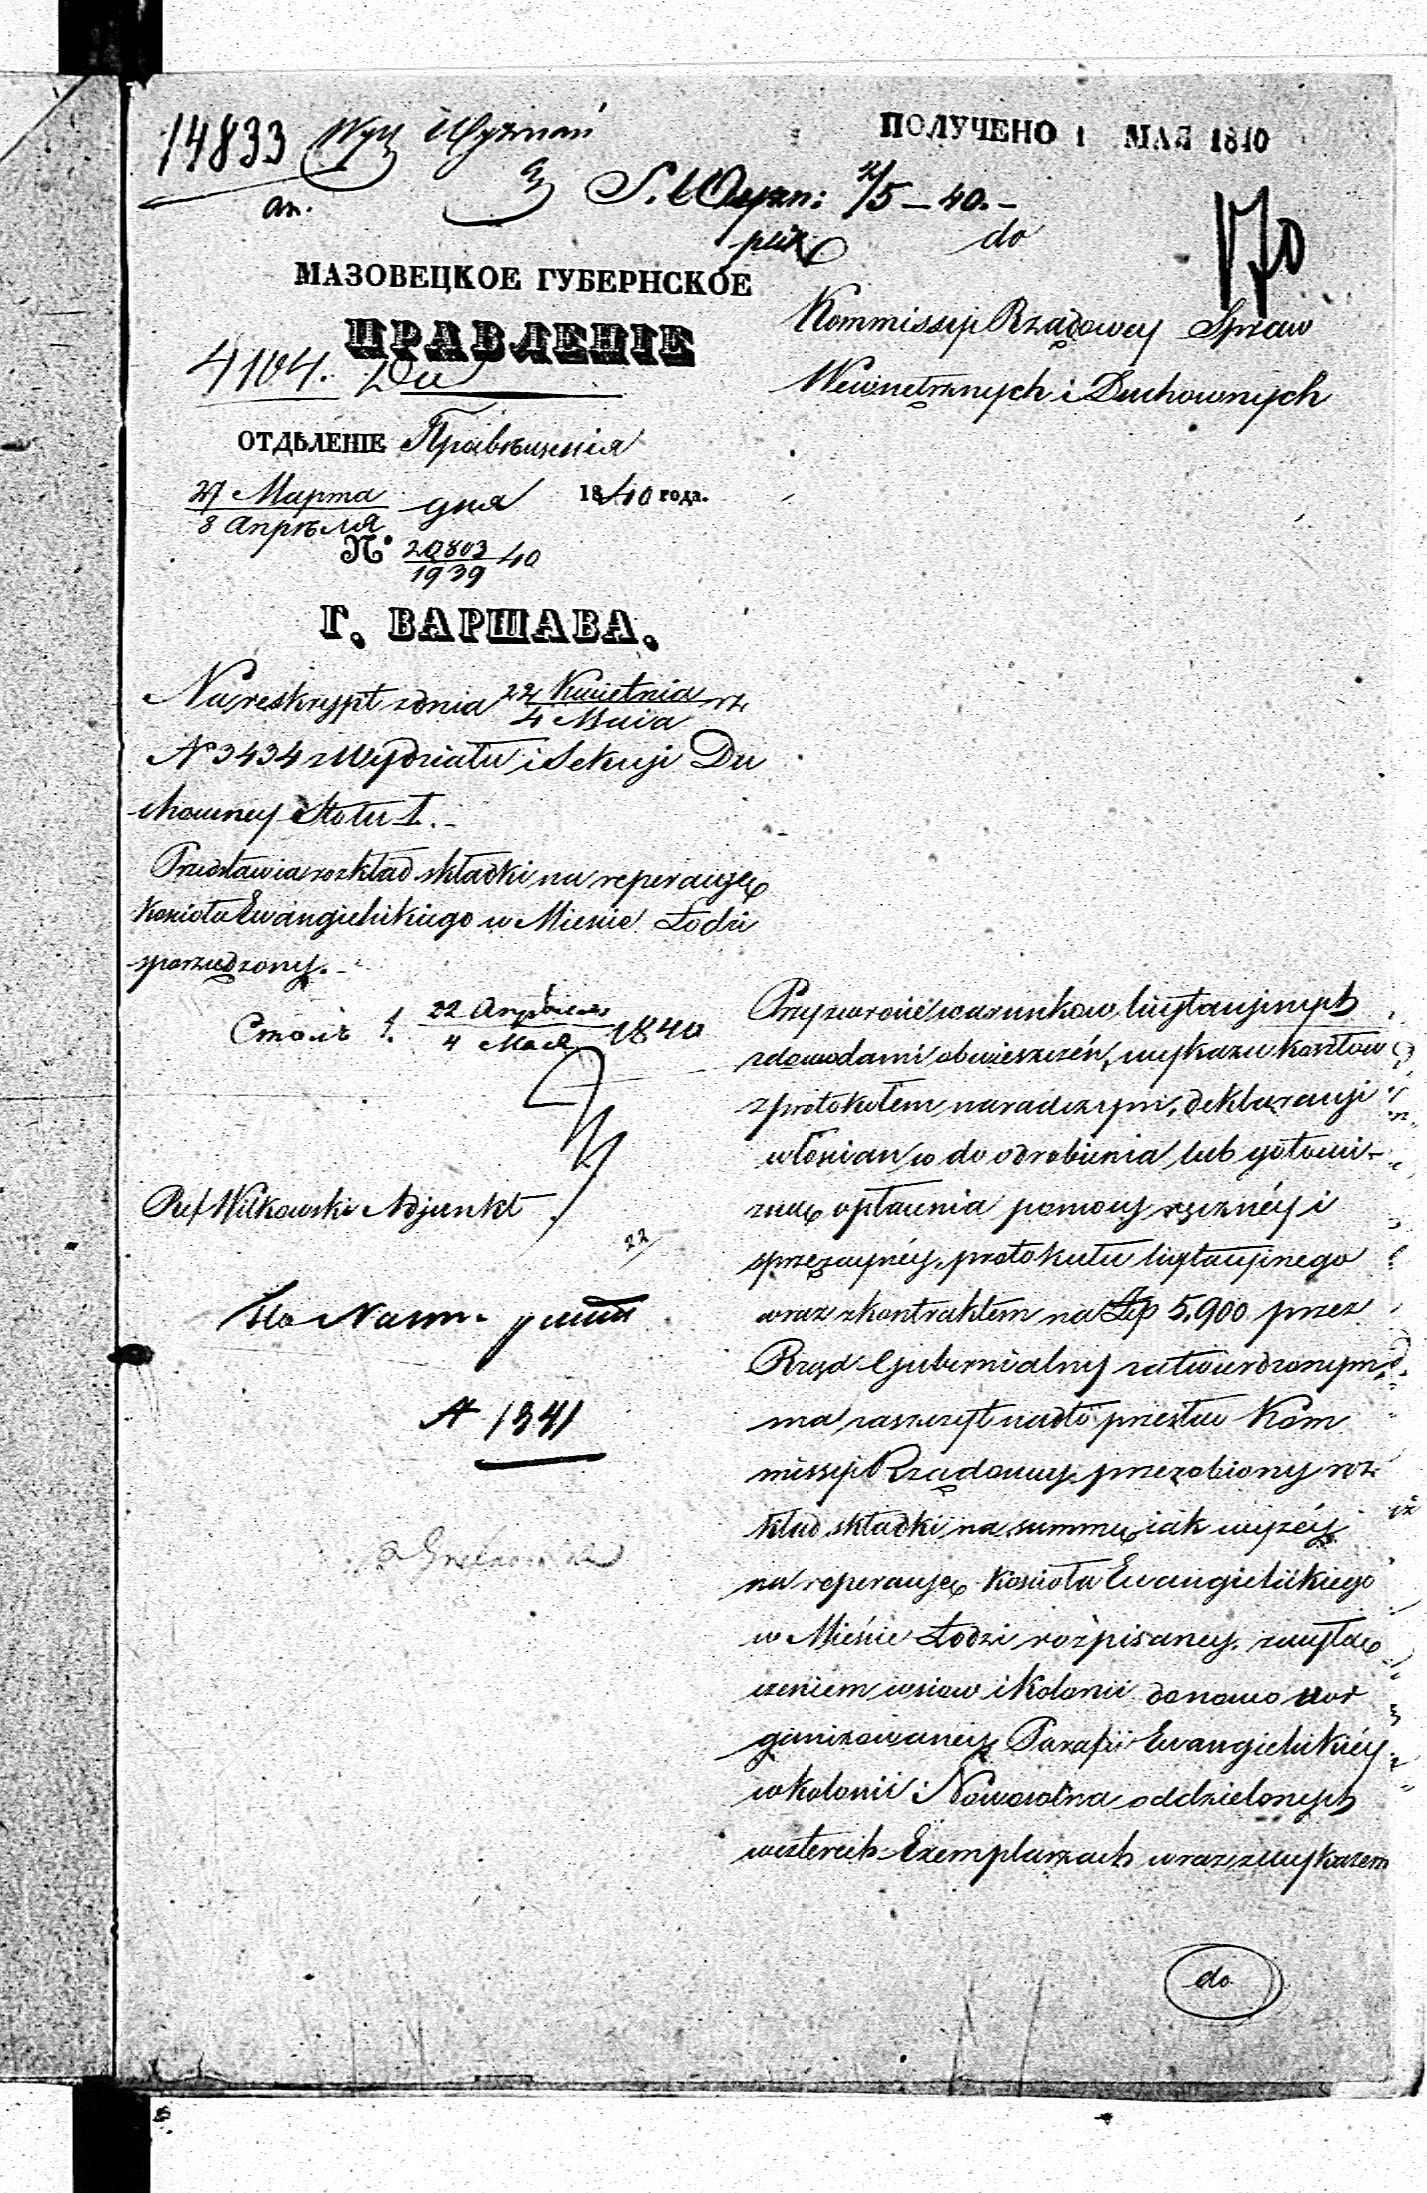 14833 Wyz Wyznań
ПОЛУЧЕНО 1 МАЯ 1840
an.
S. Wyzn: 4/5 – 40. –
do
170
МАЗОВЕЦКОЕ ГУБЕРНСКОЕ
ПРАВЛЕНІЕ
4104. Du
Kommissyi Rządowey Spraw
Wewnętrznych i Duchownych
ОТДѢЛЕНІЕ
27 Марта
8 Апрѣля дня 1840 года.
№ 20803
1939 40
Г. ВАРШАВА.
Na reskrypt z dnia 22 Kwietnia
4 Maia r.
N 3434 z Wydziału i Sekcyi Du
chowney Stołu I. –
Przedstawia rozkład składki na reperacyę
Kościoła Ewangielickiego w Mieście Łodzi
sporządzony. –
Столъ 1. 22 Апрѣля
4 Мая 1840
Ref Witkowski Adjunkt
22
A 1341
Przy zwrocie warunkow licytacyinych
z dowodami obwieszczeń, wykazu kosztow
z protokołem naradczym, deklaracyi
włościan w do odrobienia lub gotowi-
zną opłacenia pomocy ręcznéy i
sprzęzaynéy, protokułu licytacyinego
wraz z kontraktem na Złp 5,900 przez
Rząd Gubernialny zatwierdzonym,
ma zaszczyt nadto przesłac Kom
missyi Rządowey przerobiony roz
kład składki na summę iak wyzéy
na reperacyę Kościoła Ewangielickiego
w Mieście Łodzi rozpisaney, z wyłą
czeniem wsiow i Kolonii do nowo uor
ganizowaney Parafii Ewangielickiéy
w kolonii Nowosolna oddzielonych
w czterech Exemplarzach wraz z Wykazem
do